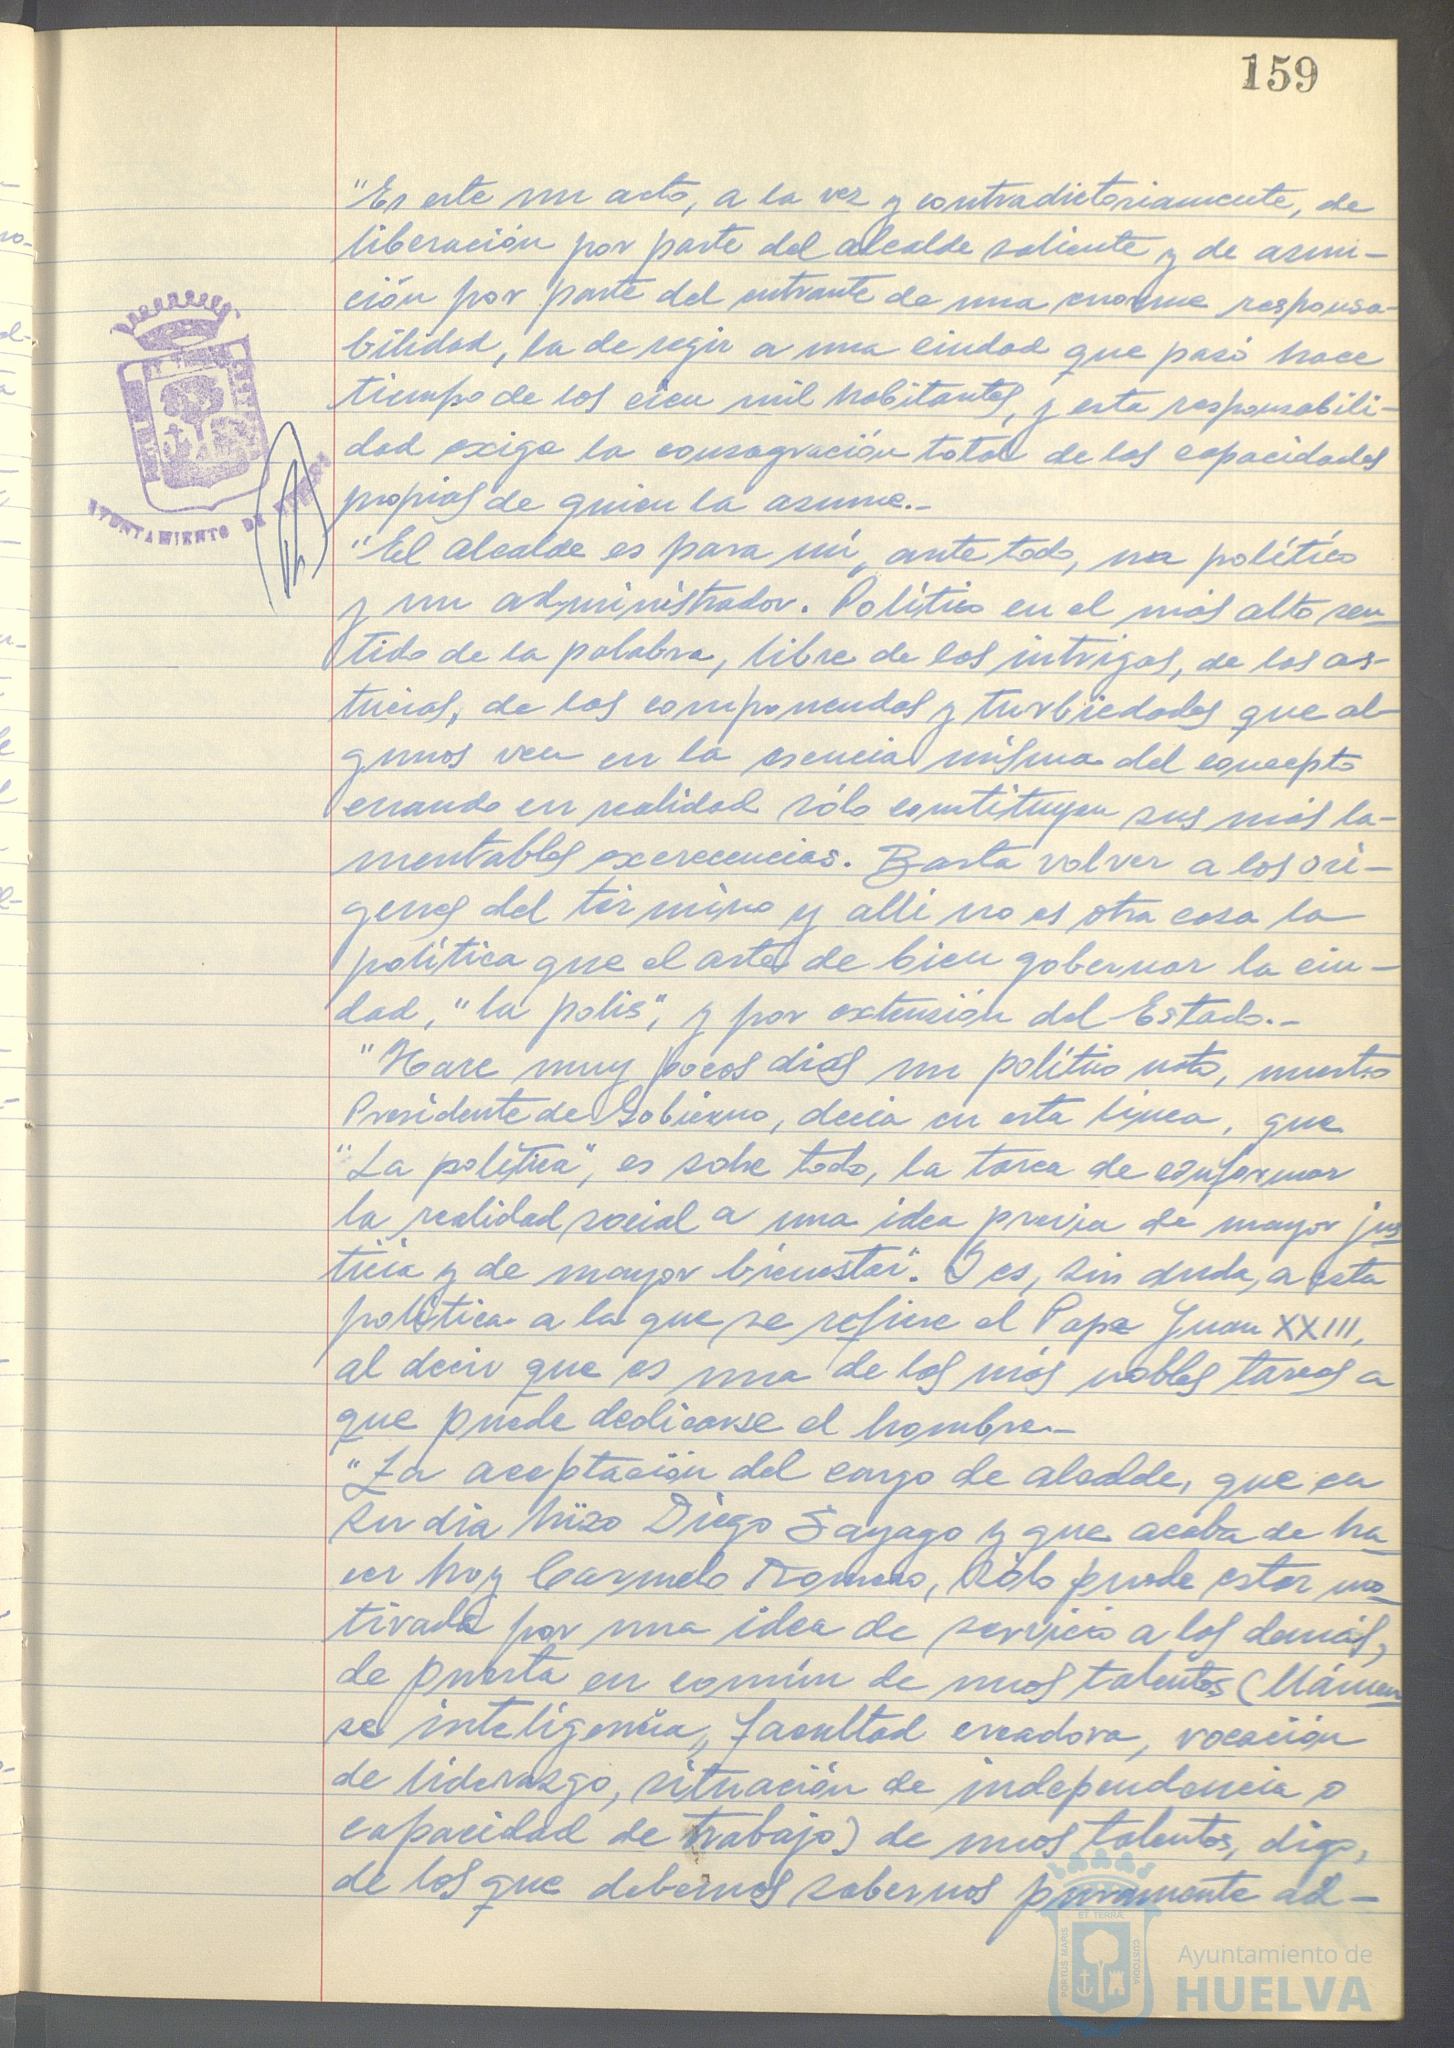 159
"Es este un acto, a la vez y contradictoriamente, de
liberación por parte del alcalde saliente y de asun-
ción por parte del entrante de una enorme responsa-
bilidad, la de regir a una ciudad que pasó hace
tiempo de los cien mil habitantes, y esta responsabili-
dad exige la consagración total de las capacidades
propias de quien la asume.-
"El alcalde es para mí, ante todo, un político
y un administrador. Político en el más alto sen-
tido de la palabra, libre de las intrigas, de las as-
tucias, de las componendas y turbiedades que al-
gunos ven en la esencia misma del concepto
cuando en realidad sólo constituyen sus más la-
mentables excrecencias. Basta volver a los orí-
genes del término y allí no es otra cosa la
política que el arte de bien gobernar la ciu-
dad, "la polis", y por extensión del Estado.-
"Hace muy pocos días un político nato, nuestro
Presidente de Gobierno, decía en esta línea, que
"La política", es sobre todo, la tarea de conformar
la realidad social a una idea previa de mayor jus
ticia y de mayor bienestar". Y es, sin duda, a esta
política a la que se refiere el Papa Juan XXIII,
al decir que es una de las más nobles tareas a
que puede dedicarse el hombre.-
"La aceptación del cargo de alcalde, que en
su día hizo Diego Sayago y que acaba de ha-
cer hoy Carmelo Romero, sólo puede estar mo-
tivada por una idea de servicio a los demás,
de puesta en común de unos talentos (llámen
se inteligencia, facultad creadora, vocación
de liderazgo, situación de independencia o
capacidad de trabajo) de unos talentos, digo,
de los que debemos sabernos puramente ad-
AYUNTAMIENTO DE HUELVA
PORTUS MARIS
ET TERRAE
CUSTODIA
Ayuntamiento de
HUELVA